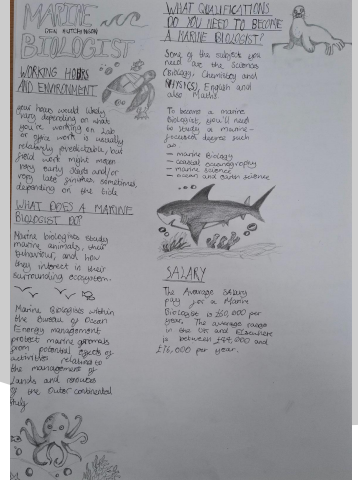 MARINE
BEN HUTCHISON
BIOLOGIST
WORKING HOURS
AND ENVIRONMENT
your hours would likely
vary depending on what
you're working on. Lab
or office work is usually
relatively predictable, but
field work might mean
very early starts and/or
very late finishes sometimes,
depending on the tide.
WHAT DOES A MARINE
BIOLOGIST DO?
Marine biologists study
marine animals, their
behaviour, and how
they interest in their
surrounding ecosystem.
Marine Biologists within
the Bureau of Ocean
Energy management
protect marine animals
from potential effects of
activities relating to
the management of
lands and resources
of the Outer continental
WHAT QUALIFICATIONS
DO YOU NEED TO BECOME
A MARINE BIOLOGIST?
Some of the subjects you
need are the Sciences
(Biology, Chemistry and
PHYSICS), English and
also Maths.
To become a marine
Biologist, you'll need
to study a marine-
focused degree such
as
- marine Biology
- coastal oceanography
- marine science
- ocean and earth science
SALARY
The Average Salary
pay for a Marine
Biologist is £50,000 per
year. The average range
in the UK and Elsewhere
is between £44,000 and
£76,000 per year.